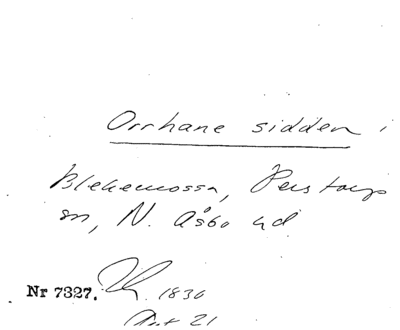 Orrhane sidden i
Blekemossa, Perstorps
sn, N. Åsbo hd
Nr 7327. 1830
Ant 21